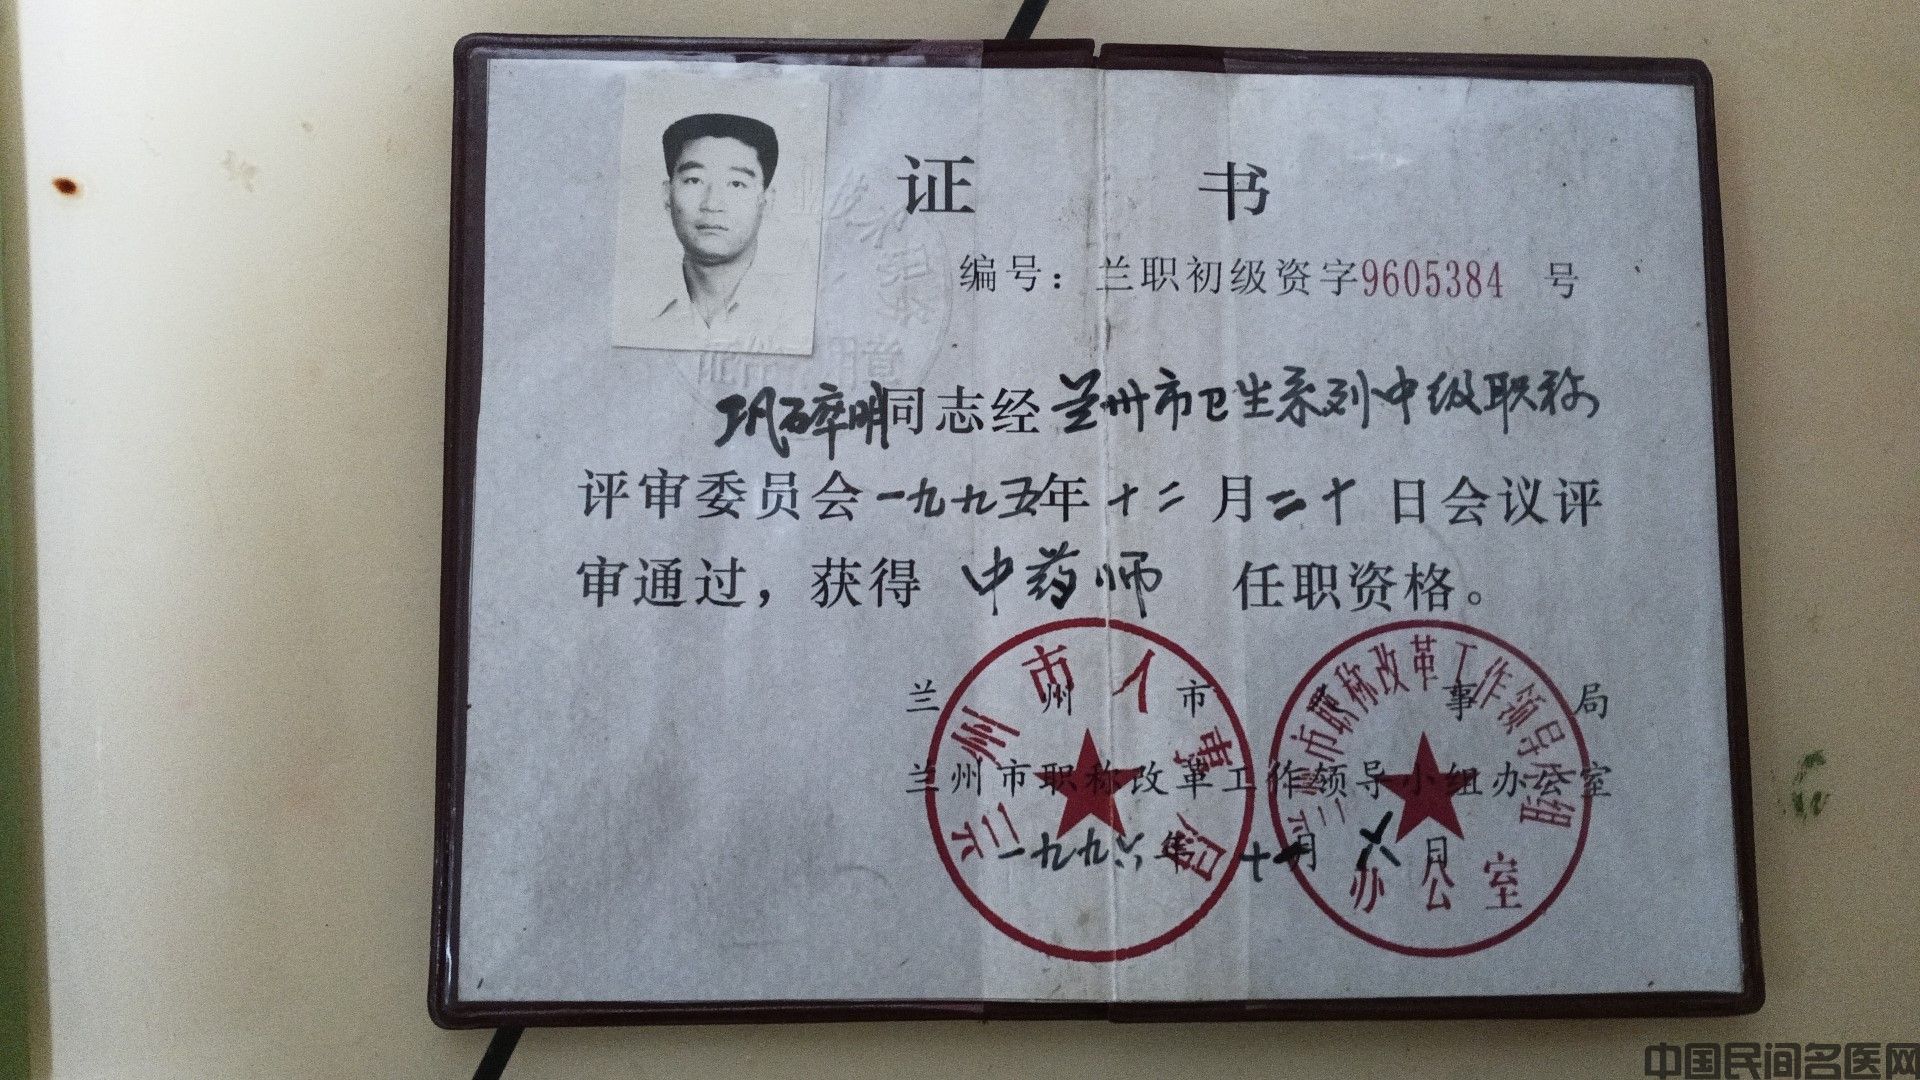 证 书
编号：兰职初级资字9605384 号
巩碎明同志经兰州市卫生系列中级职称
评审委员会一九九五年十二月二十日会议评
审通过，获得 中药师 任职资格。
兰州市人事局
兰州市职称改革工作领导小组办公室
一九九六年十一月 日
兰州市人事局
兰州市职称改革工作领导小组
办公室
中国民间名医网